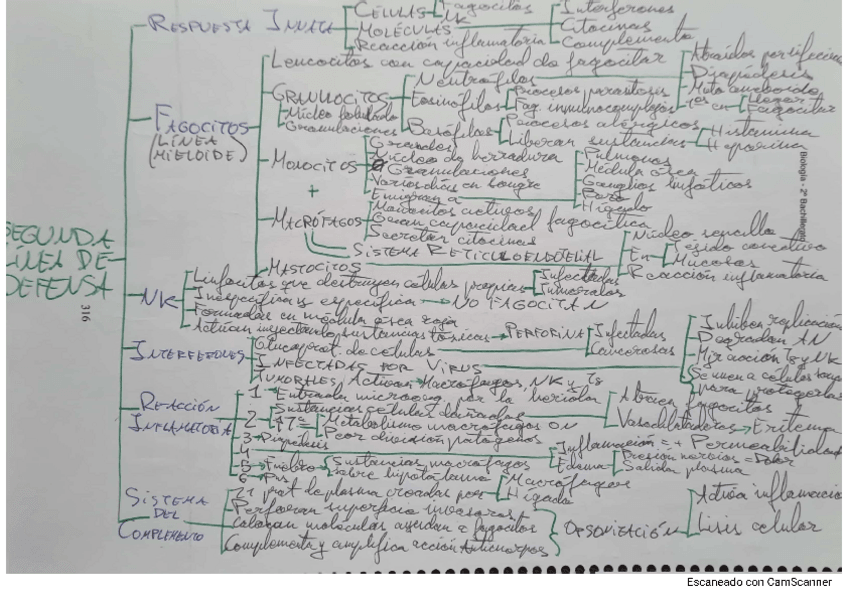 RESPUESTA INNATA
CÉLULAS
Fagocitos
NK
MOLÉCULAS
Interferones
Citocinas
Complemento
Reacción inflamatoria
SEGUNDA LÍNEA DE DEFENSA
FAGOCITOS
(LÍNEA MIELOIDE)
Leucocitos con capacidad de fagocitar
GRANULOCITOS
Núcleo lobulado
Granulaciones
Neutrófilos
Atraídos por
Diapédesis
Llegar
Fagocitar
Eosinófilos
Procesos parasitosis
Fag. inmunocomplejos
Basófilos
Procesos alérgicos
Liberan sustancias
Histamina
Heparina
MONOCITOS
Grandes
Núcleo de herradura
Granulaciones
Varios días en sangre
Emigran a
Pulmones
Médula ósea
Ganglios linfáticos
Bazo
Hígado
+
MACRÓFAGOS
Monocitos activos
Gran capacidad fagocítica
Secretan citocinas
SISTEMA RETICULOENDOTELIAL
MASTOCITOS
Núcleo sencillo
En
Tejido conectivo
Mucosas
Reacción inflamatoria
NK
Linfocitos que destruyen células propias
Infectadas
Tumorales
NO FAGOCITAN
Formadas en médula ósea roja
Actúan inyectando sustancias tóxicas → PERFORINA
Infectadas
Cancerosas
INTERFERONES
Glucoprot. de células
INFECTADAS POR VIRUS
TUMORALES
Activan Macrófagos, NK y
Inhiben replicación
Degradan AN
para protegerlas
REACCIÓN INFLAMATORIA
1 → Entrada microorg. por la herida
2
Sustancias células dañadas
Atraen fagocitos
Vasodilatadoras → Eritema
↑Tª
Metabolismo macrófagos ON
Peor división patógenos
3 → Diapédesis
4
Inflamación = + Permeabilidad
Edema
Presión nervios = Dolor
Salida plasma
5 → Fiebre
Sustancias macrófagos
sobre hipotálamo
6 Pus
SISTEMA DEL COMPLEMENTO
prot. de plasma creadas por
Macrófagos
Hígado
Perforan superficie invasores
Colocan moléculas ayudan a fagocitos
Complementa y amplifica acción Anticuerpos
OPSONIZACIÓN
Activa inflamación
Lisis celular
Biología - 2º Bachillerato
316
Escaneado con CamScanner